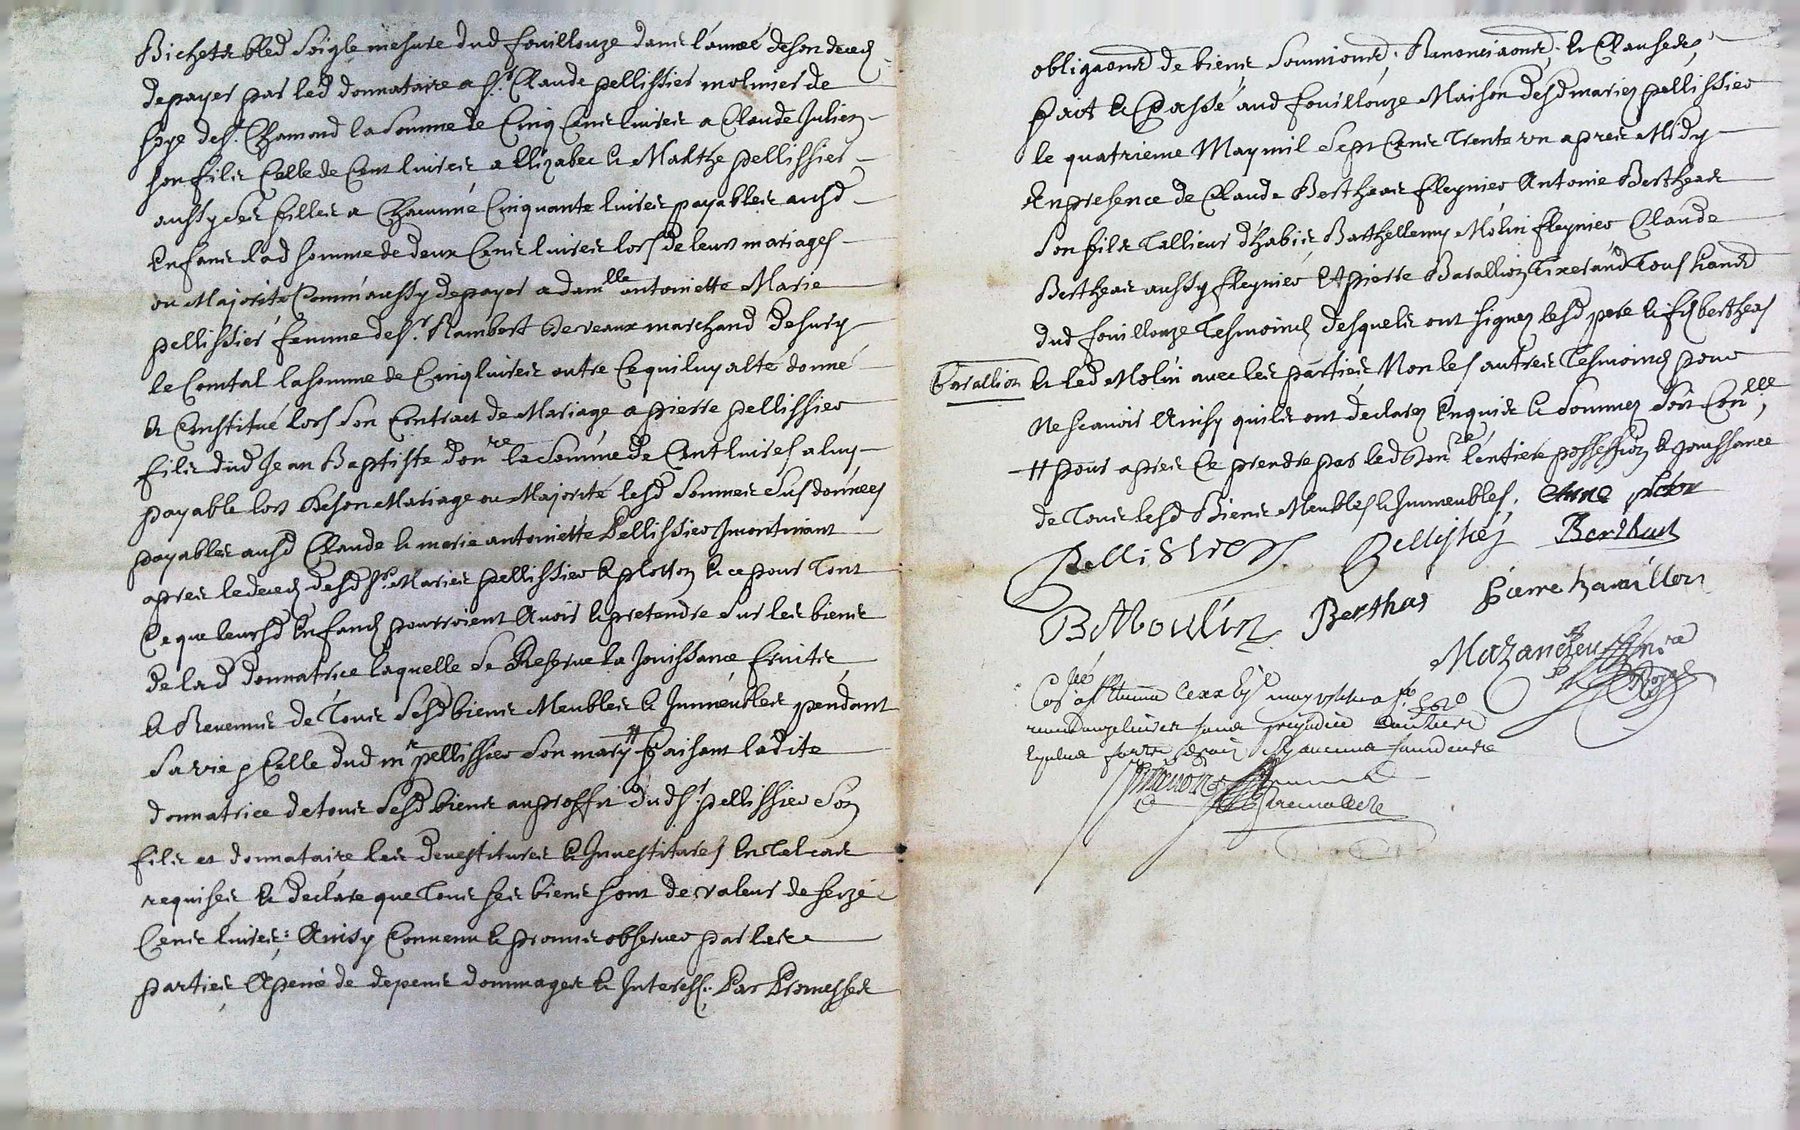 Bichets bled soigle mesure dud fouillouze dans l'année de son deced
de payer par led donnataire a Sr. Claude pellissier molinier de
St. Chamond la somme de Cinq Cens livres a Claude Julien
son fils Celle de Cent livres a Elizabec & Marthe pellissier
aussy ses filles a Chacune Cinquante livres payables ausd
Enfans lad somme de deux Cens livres lors de leurs mariages
ou Majorité Comm'aussy de payer a damlle antoinette Marie
pellissier femme de Sr. Rambert Derveaux marchand de sury
le Comtal la somme de Cinq livres outre Ce qui luy a lté donné
& Constitué lors son Contract de Mariage, a pierre pellissier
fils dud Jean Baptiste donre la somme de Cent livres a luy
payable lors de son Mariage ou Majorité lesd sommes sus données
payables ausd Claude & marie antoinette Pellissier
apres le deced desd Sr. Maries pellissier & plotton & ce pour tout
Ce que leursd Enfans pourroient Avoir & pretendre sur les biens
de lad donnatrice laquelle se Reserve la Jouissance fruits
& Revenus de tous sesd biens Meubles & Immeubles pendant
sa vie & Celle dud mr pellissier son mary # faisant ladite
donnatrice de tous sesd biens au proffit dudSr. pellissier son
fils et donnataire les devestitures & Investitures En tel cas
requises & declare que tous ses biens sont de valeur de seize
Cens livres; Ainsy Convenu & promis observer par les
parties A peine de depens dommages & Interess: Par Promesses
obligaons de biens soumions; Renonciaons; & Clauses;
fait & Passé aud fouillouze Maison desd maries pellissier
le quatrieme May mil sept Cens trente un apres Midy
En presence de Claude Bertheas fleynier Antoine Bertheas
son fils tallieur d'habis Barthellemy Molin fleynier Claude
Bertheas aussy fleynier & pierre Baraillon tixerand tous
dud fouillouze tesmoins desquels ont signez lesd pere & fils bertheas
Barallion & led Molin avec les parties Non les autres tesmoins pour
Ne scavoir Ainsy quils ont declarez Enquis & sommez
# pour apres Ce prendre par led donre l'entiere possession & jouissance
de tous lesd Biens Meubles & Immeubles; Anne ploton
Pellissier Pellissier Bertheas
B Moulin Berthas pierre baraillon
Mazandieu Nre